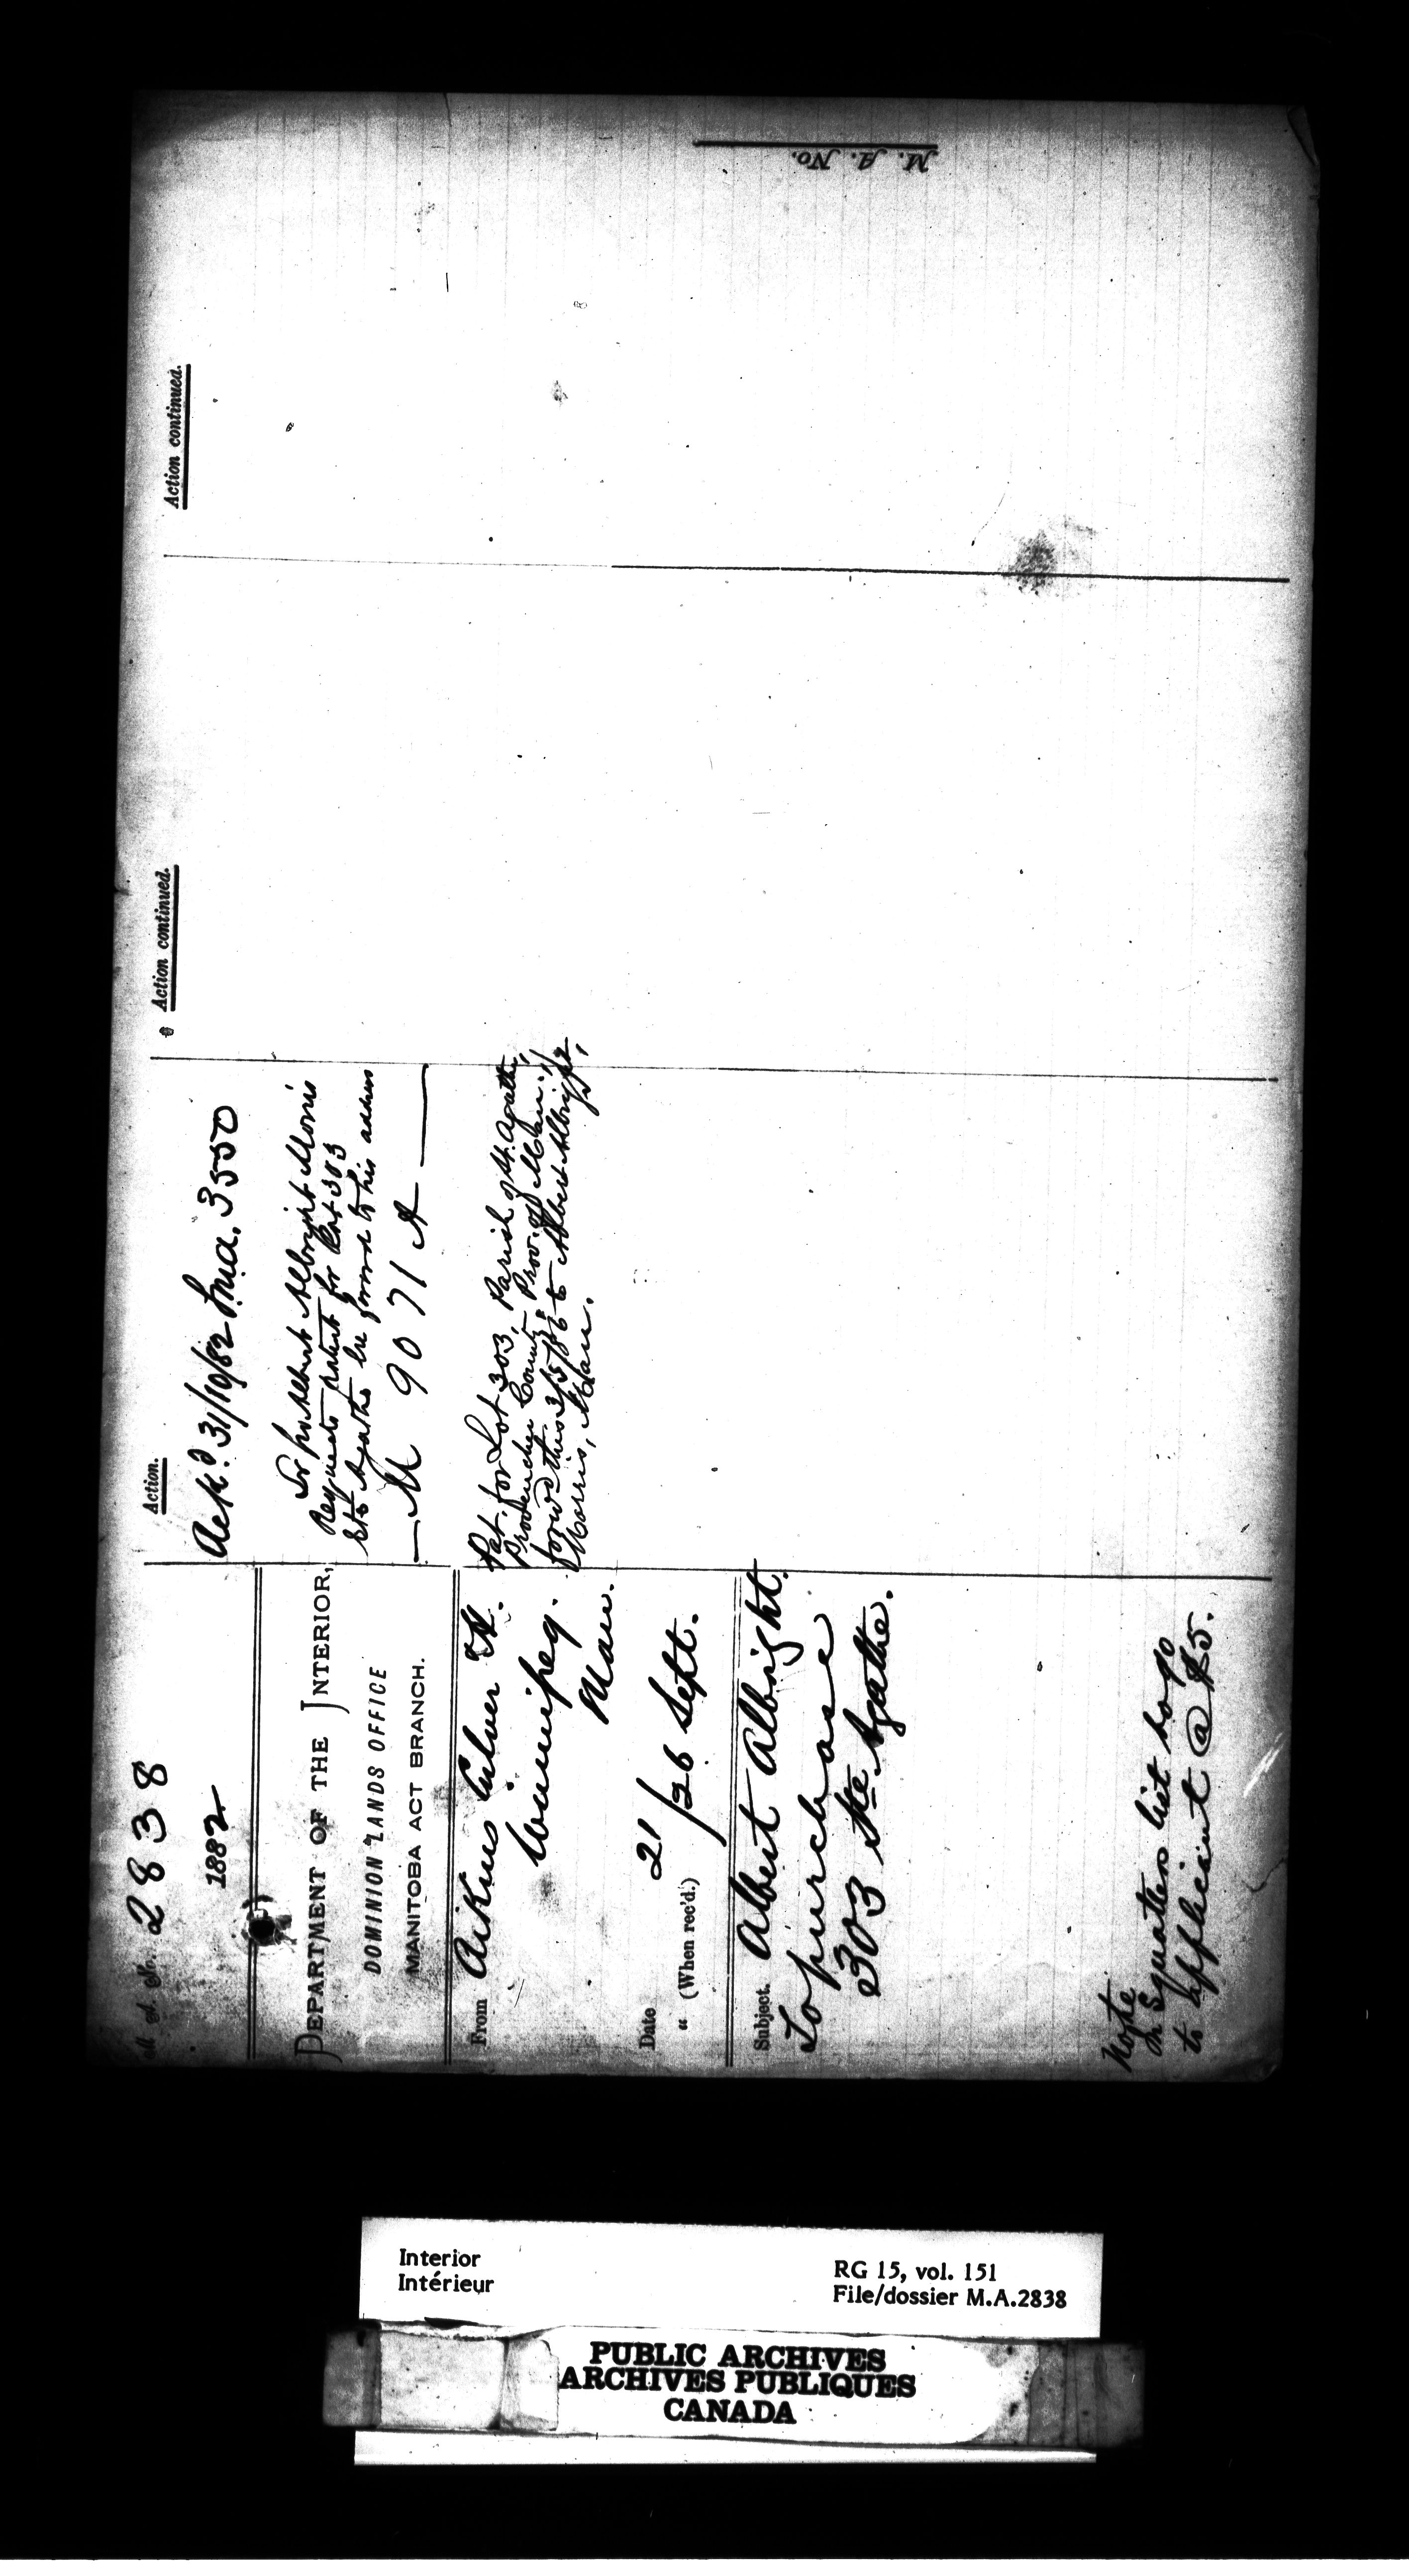 M. A. No. 2838
1882
DEPARTMENT OF THE INTERIOR,
DOMINION LANDS OFFICE
MANITOBA ACT BRANCH.
From Aikins Culver &
Winnipeg.
Man.
Date 21
" (When rec'd.) /26 Sept.
Subject. Albert Albright.
To purchase
303 Ste Agathe.
Note
In Squatters list to go
to applicant @ $5.
Action.
Ack.d 31/10/82 3550
Albert Albright Morris
Requests patent for Lot 303
Ste Agathe be forwd to his address
M 9071 A
Pat. for Lot 303, Parish of St. Agathe,
Provencher County, Prov. of Man.,
forwd this 3/5/86 to Albert Albright,
Morris, Man.
Action continued.
Action continued.
M. A. No.
Interior
Intérieur
RG 15, vol. 151
File/dossier M.A.2838
PUBLIC ARCHIVES
ARCHIVES PUBLIQUES
CANADA